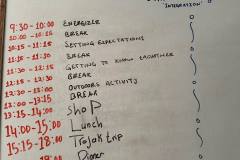 INTEGRATION
9:30 - 10:00 ENERGIZER
10:00 - 10:15 BREAK
10:15 - 11:15 SETTING EXPECTATIONS
11:15 - 11:30 BREAK
11:30 - 12:15 GETTING TO KNOW EACHOTHER
12:15 - 12:30 BREAK
12:30 - 13:00 OUTDOORS ACTIVITY
13:00 - 13:15 BREAK
13:15 - 14:00 SHOP
14:00 - 15:00 Lunch
15:15 - 18:00 Trojak trip
Dinner